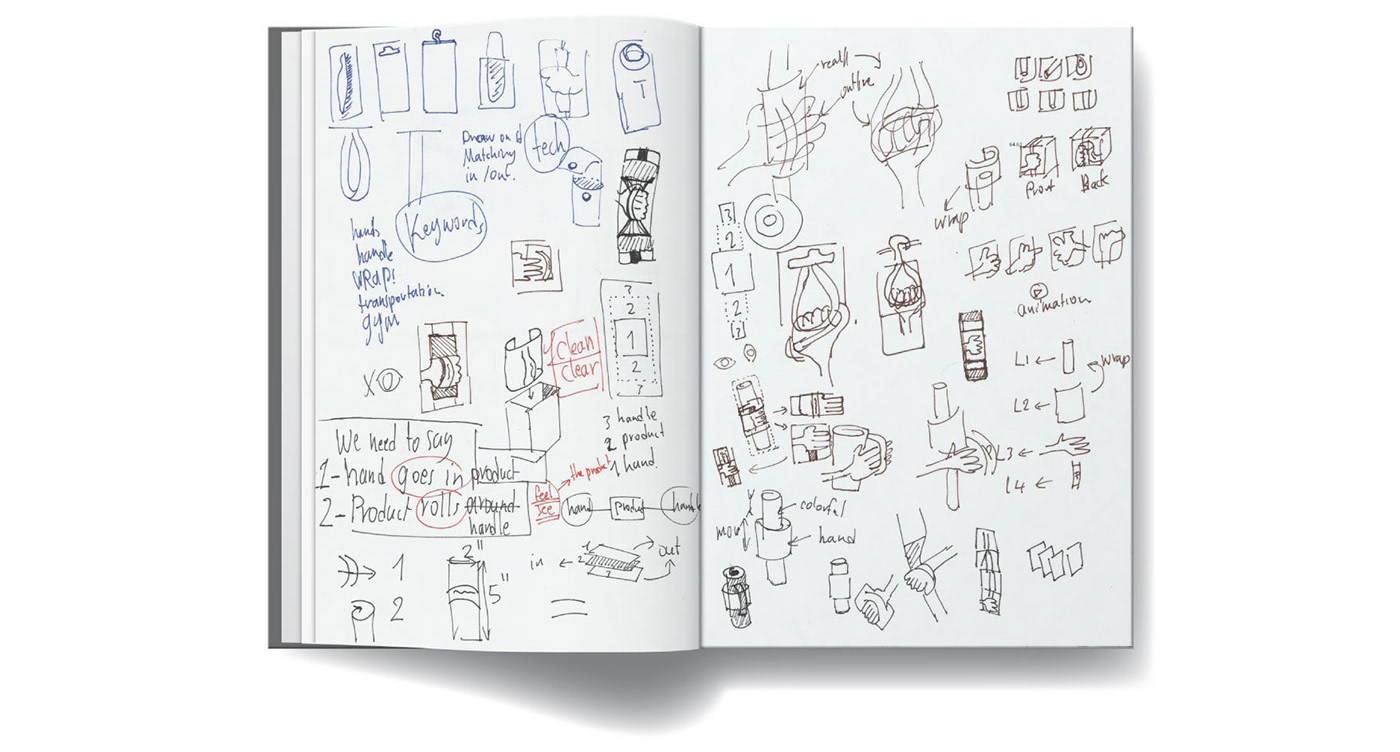 Draw on &
Matching
in / out.
tech
Keywords
hands
handle
WRaP!
transportation
gym
clean
clear
3
2
1
2
3
X
3 handle
2 product
1 hand.
We need to say
1-hand goes in product
2-Product rolls around handle
feel
see
the product
hand
product
handle
1
2
2"
5"
in
1
2
3
out
T
really
outline
wrap
Front
Back
3
2
1
2
3
animation
L1
L2
L3
L4
wrap
colorful
hand